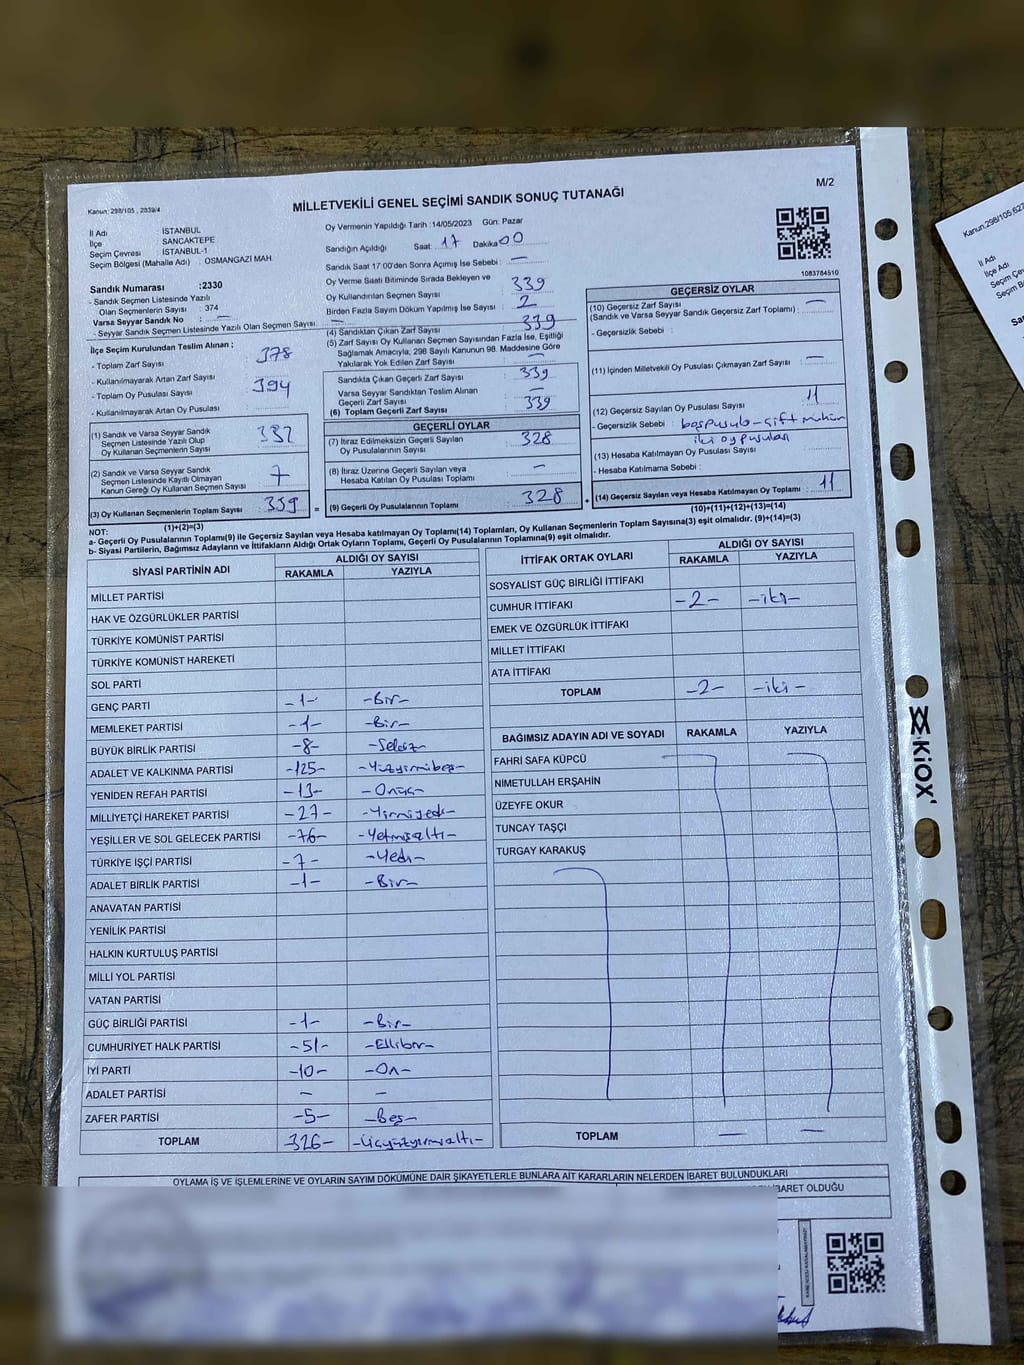 MİLLETVEKİLİ GENEL SEÇİMİ SANDIK SONUÇ TUTANAĞI
M/2
Kanun: 298/105 , 2839/4
İl Adı : İSTANBUL
İlçe : SANCAKTEPE
Seçim Çevresi : İSTANBUL-1
Seçim Bölgesi (Mahalle Adı) : OSMANGAZİ MAH.
Sandık Numarası :2330
- Sandık Seçmen Listesinde Yazılı
Olan Seçmenlerin Sayısı : 374
Varsa Seyyar Sandık No : —
- Seyyar Sandık Seçmen Listesinde Yazılı Olan Seçmen Sayısı: —
İlçe Seçim Kurulundan Teslim Alınan ;
- Toplam Zarf Sayısı : 378
- Kullanılmayarak Artan Zarf Sayısı :
- Toplam Oy Pusulası Sayısı : 394
- Kullanılmayarak Artan Oy Pusulası :
(1) Sandık ve Varsa Seyyar Sandık
Seçmen Listesinde Yazılı Olup
Oy Kullanan Seçmenlerin Sayısı : 332
(2) Sandık ve Varsa Seyyar Sandık
Seçmen Listesinde Kayıtlı Olmayan
Kanun Gereği Oy Kullanan Seçmen Sayısı : 7
(3) Oy Kullanan Seçmenlerin Toplam Sayısı : 339
(1)+(2)=(3)
Oy Vermenin Yapıldığı Tarih :14/05/2023 Gün: Pazar
Sandığın Açıldığı Saat: 17 Dakika 00
Sandık Saat 17:00'den Sonra Açımış İse Sebebi : —
Oy Verme Saati Bitiminde Sırada Bekleyen ve
Oy Kullandırılan Seçmen Sayısı : 339
Birden Fazla Sayım Döküm Yapılmış İse Sayısı : 2
(4) Sandıktan Çıkan Zarf Sayısı : 339
(5) Zarf Sayısı Oy Kullanan Seçmen Sayısından Fazla İse, Eşitliği
Sağlamak Amacıyla, 298 Sayılı Kanunun 98. Maddesine Göre
Yakılarak Yok Edilen Zarf Sayısı : —
Sandıkta Çıkan Geçerli Zarf Sayısı : 339
Varsa Seyyar Sandıktan Teslim Alınan
Geçerli Zarf Sayısı : —
(6) Toplam Geçerli Zarf Sayısı : 339
GEÇERLİ OYLAR
(7) İtiraz Edilmeksizin Geçerli Sayılan
Oy Pusulalarının Sayısı : 328
(8) İtiraz Üzerine Geçerli Sayılan veya
Hesaba Katılan Oy Pusulası Toplamı : —
(9) Geçerli Oy Pusulalarının Toplamı : 328
1083784510
GEÇERSİZ OYLAR
(10) Geçersiz Zarf Sayısı : —
(Sandık ve Varsa Seyyar Sandık Geçersiz Zarf Toplamı) :
- Geçersizlik Sebebi :
(11) İçinden Milletvekili Oy Pusulası Çıkmayan Zarf Sayısı : —
(12) Geçersiz Sayılan Oy Pusulası Sayısı : 11
- Geçersizlik Sebebi : boş pusula - çift mühür
iki oy pusulası
(13) Hesaba Katılmayan Oy Pusulası Sayısı :
- Hesaba Katılmama Sebebi :
(14) Geçersiz Sayılan veya Hesaba Katılmayan Oy Toplamı : 11
(10)+(11)+(12)+(13)=(14)
NOT:
a- Geçerli Oy Pusulalarının Toplamı(9) ile Geçersiz Sayılan veya Hesaba katılmayan Oy Toplamı(14) Toplamları, Oy Kullanan Seçmenlerin Toplam Sayısına(3) eşit olmalıdır. (9)+(14)=(3)
b- Siyasi Partilerin, Bağımsız Adayların ve İttifakların Aldığı Ortak Oyların Toplamı, Geçerli Oy Pusulalarının Toplamına(9) eşit olmalıdır.
SİYASİ PARTİNİN ADI ALDIĞI OY SAYISI
RAKAMLA YAZIYLA
MİLLET PARTİSİ
HAK VE ÖZGÜRLÜKLER PARTİSİ
TÜRKİYE KOMÜNİST PARTİSİ
TÜRKİYE KOMÜNİST HAREKETİ
SOL PARTİ
GENÇ PARTİ -1- -Bir-
MEMLEKET PARTİSİ -1- -Bir-
BÜYÜK BİRLİK PARTİSİ -8- -Sekiz-
ADALET VE KALKINMA PARTİSİ -125- -Yüzyirmibeş-
YENİDEN REFAH PARTİSİ -13- -Onüç-
MİLLİYETÇİ HAREKET PARTİSİ -27- -Yirmiyedi-
YEŞİLLER VE SOL GELECEK PARTİSİ -76- -Yetmişaltı-
TÜRKİYE İŞÇİ PARTİSİ -7- -Yedi-
ADALET BİRLİK PARTİSİ -1- -Bir-
ANAVATAN PARTİSİ
YENİLİK PARTİSİ
HALKIN KURTULUŞ PARTİSİ
MİLLİ YOL PARTİSİ
VATAN PARTİSİ
GÜÇ BİRLİĞİ PARTİSİ -1- -Bir-
CUMHURİYET HALK PARTİSİ -51- -Ellibir-
İYİ PARTİ -10- -On-
ADALET PARTİSİ — —
ZAFER PARTİSİ -5- -Beş-
TOPLAM 326- -Üçyüzyirmialtı-
İTTİFAK ORTAK OYLARI ALDIĞI OY SAYISI
RAKAMLA YAZIYLA
SOSYALİST GÜÇ BİRLİĞİ İTTİFAKI
CUMHUR İTTİFAKI -2- -iki-
EMEK VE ÖZGÜRLÜK İTTİFAKI
MİLLET İTTİFAKI
ATA İTTİFAKI
TOPLAM -2- -iki-
BAĞIMSIZ ADAYIN ADI VE SOYADI RAKAMLA YAZIYLA
FAHRİ SAFA KÜPCÜ
NİMETULLAH ERŞAHİN
ÜZEYFE OKUR
TUNCAY TAŞÇI
TURGAY KARAKUŞ
TOPLAM — —
OYLAMA İŞ VE İŞLEMLERİNE VE OYLARIN SAYIM DÖKÜMÜNE DAİR ŞİKAYETLERLE BUNLARA AİT KARARLARIN NELERDEN İBARET BULUNDUKLARI
BARET OLDUĞU
KiOX
Kanun.298/105,627
İl Adı
İlçe Adı
Seçim
Seçim B